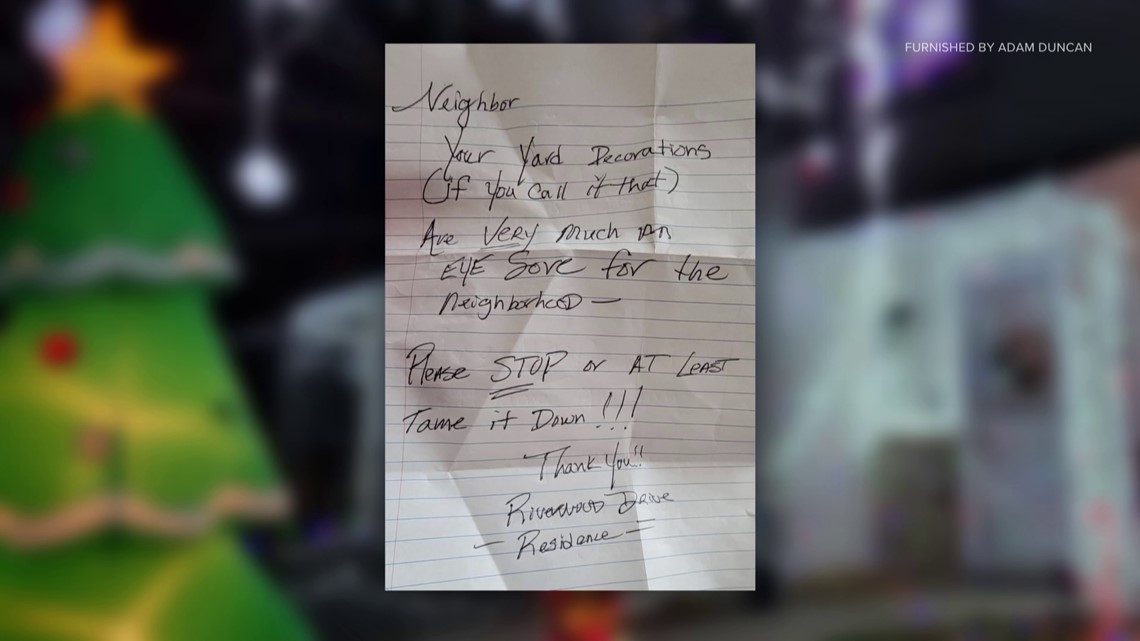 FURNISHED BY ADAM DUNCAN
Neighbor
Your Yard Decorations
(If you call it that)
Are VERY much an
EYE Sore for the
Neighborhood —
Please STOP or AT LEAST
Tame it Down !!!
Thank You!!
Riverwood Drive
— Residence —